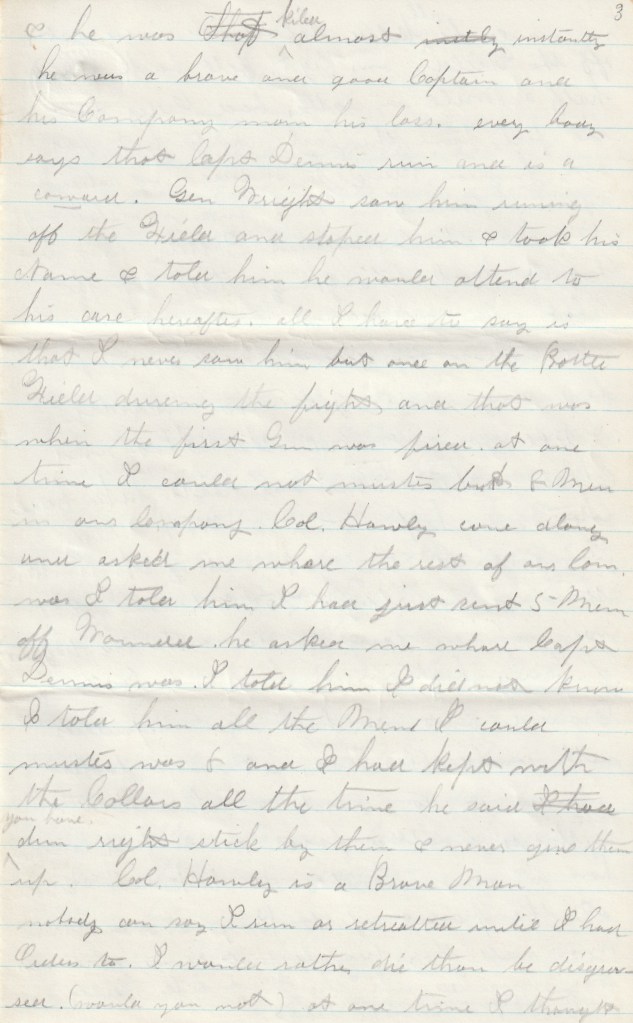 3
& he was ~~Shot~~ kiled almost ~~instly~~ instantly
he was a brave and good Captain and
his Company morn his loss. every body
says that Capt Dennis run and is a
coward. Gen Wright saw him runing
off the Field and stoped him & took his
Name & told him he would attend to
his care hereafter. all I have to say is
that I never saw him but once on the Battle
Field dureing the fight and that was
when the first Gun was fired. at one
time I could not muster but 8 Men
in our Company. Col. Hawly came along
and asked me whare the rest of our Com.
was I told him I had just sent 5 Men
off Wounded. he asked me whare Capt
Dennis was. I told him I did not know
I told him all the Mend I could
muster was 8 and I had kept with
the Collars all the time he said ~~I had~~
you have.
dun right stick by them & never give them
up. Col. Hawly is a Brave Man
nobody can say I run or retreatted untill I had
Orders to. I would rather die than be disgra-
sed. (would you not) at one time I thought